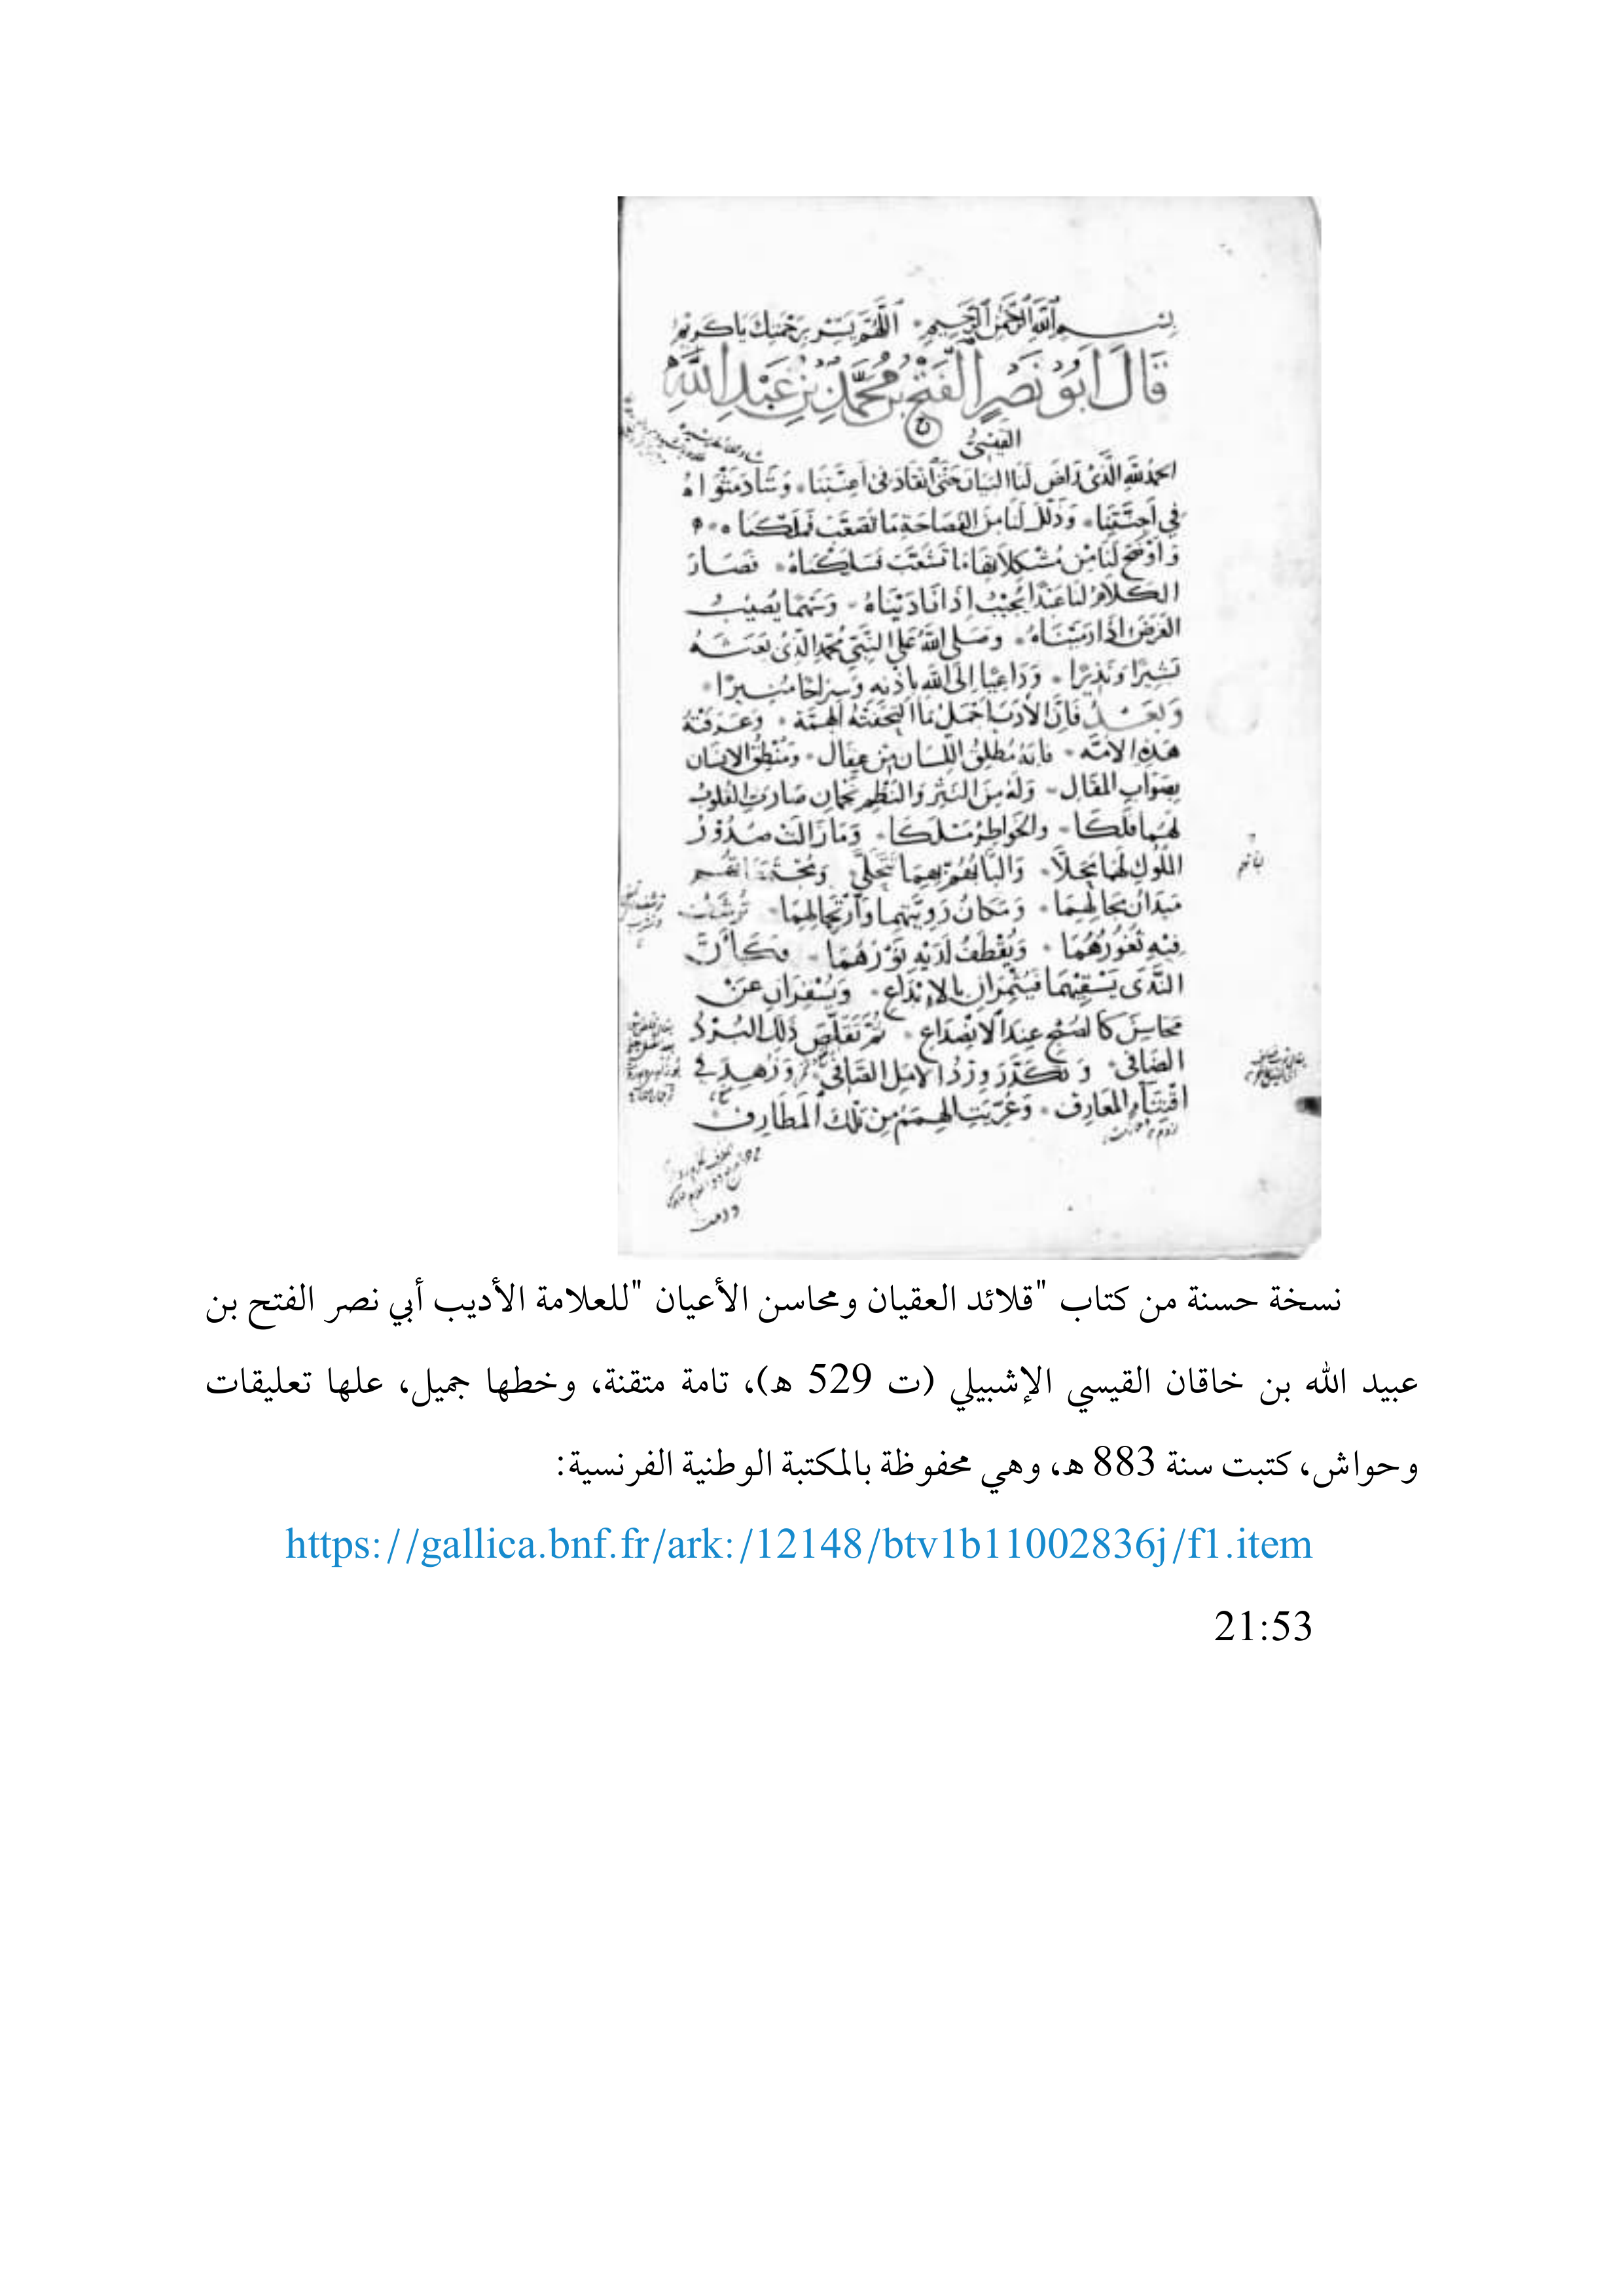 بسم الله الرحمن الرحيم اللهم يسر برحمتك يا كريم
قال أبو نصر الفتح بن محمد بن عبد الله
القيسي
الحمد لله الذي راض لنا البيان حتى انقاد في أعنتنا وشاد مثواه
في أجنتنا وذلل لنا من الفصاحة ما تصعب فملكنا
وأوضح لنا من مشكلاتها ما تشعب فسلكناه فصار
الكلام لنا عبدا يجيب إذا ناديناه وسهما يصيب
الغرض إذا رميناه وصلى الله على النبي محمد الذي بعثه
بشيرا ونذيرا وداعيا إلى الله بإذنه وسراجا منيرا
وبعد فإن الأدب أجمل ما التحفته الهمة وعرفته
هذه الأمة فإنه مطلق اللسان من عقال ومنطق الإنسان
بصواب المقال وله من النثر والنظم نجمان صارت القلوب
لهما فلكا والخواطر مسلكا وما زالت صدور
الملوك لهما مجلا بهما تتحلى
ميدان مجالهما ومكان رويتهما وارتجالهما ترشف
فيه ثغورهما ويقطف لديه نورهما فكأن
الندى يسقيهما فيثمران بالإبداع ويسفران عن
محاسن كالصبح عند الانصداع ثم تقلص ذلك البرد
الضافي وتكدر ورد الأمل الصافي وزهد في
اقتناء المعارف وعريت الهمم من تلك المطارف
نسخة حسنة من كتاب "قلائد العقيان ومحاسن الأعيان "للعلامة الأديب أبي نصر الفتح بن
عبيد الله بن خاقان القيسي الإشبيلي (ت 529 هـ)، تامة متقنة، وخطها جميل، علها تعليقات
وحواش، كتبت سنة 883 هـ، وهي محفوظة بالمكتبة الوطنية الفرنسية:
https://gallica.bnf.fr/ark:/12148/btv1b11002836j/f1.item
21:53